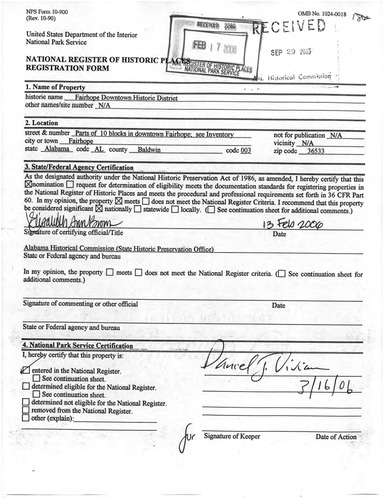 NPS Form 10-900
OMB No. 1024-0018
(Rev. 10-90)
RECEIVED 2280
RECEIVED
United States Department of the Interior
National Park Service
FEB 17 2006
SEP 29 2005
NATIONAL REGISTER OF HISTORIC PLACES
REGISTRATION FORM
REGISTER OF HISTORIC PLACES
NATIONAL PARK SERVICE
Historical Commission
1. Name of Property
historic name Fairhope Downtown Historic District
other names/site number N/A
2. Location
street & number Parts of 10 blocks in downtown Fairhope; see Inventory not for publication N/A
city or town Fairhope vicinity N/A
state Alabama code AL county Baldwin code 003 zip code 36533
3. State/Federal Agency Certification
As the designated authority under the National Historic Preservation Act of 1986, as amended, I hereby certify that this
☒nomination ☐ request for determination of eligibility meets the documentation standards for registering properties in
the National Register of Historic Places and meets the procedural and professional requirements set forth in 36 CFR Part
60. In my opinion, the property ☒ meets ☐ does not meet the National Register Criteria. I recommend that this property
be considered significant ☒ nationally ☐ statewide ☐ locally. (☐ See continuation sheet for additional comments.)
Elizabeth Ann Brown 13 Feb 2006
Signature of certifying official/Title Date
Alabama Historical Commission (State Historic Preservation Office)
State or Federal agency and bureau
In my opinion, the property ☐ meets ☐ does not meet the National Register criteria. (☐ See continuation sheet for
additional comments.)
Signature of commenting or other official Date
State or Federal agency and bureau
4. National Park Service Certification
I, hereby certify that this property is:
☑ entered in the National Register.
☐ See continuation sheet.
☐ determined eligible for the National Register.
☐ See continuation sheet.
☐ determined not eligible for the National Register.
☐ removed from the National Register.
☐ other (explain):
Daniel J. Vivian
3/16/06
for Signature of Keeper Date of Action